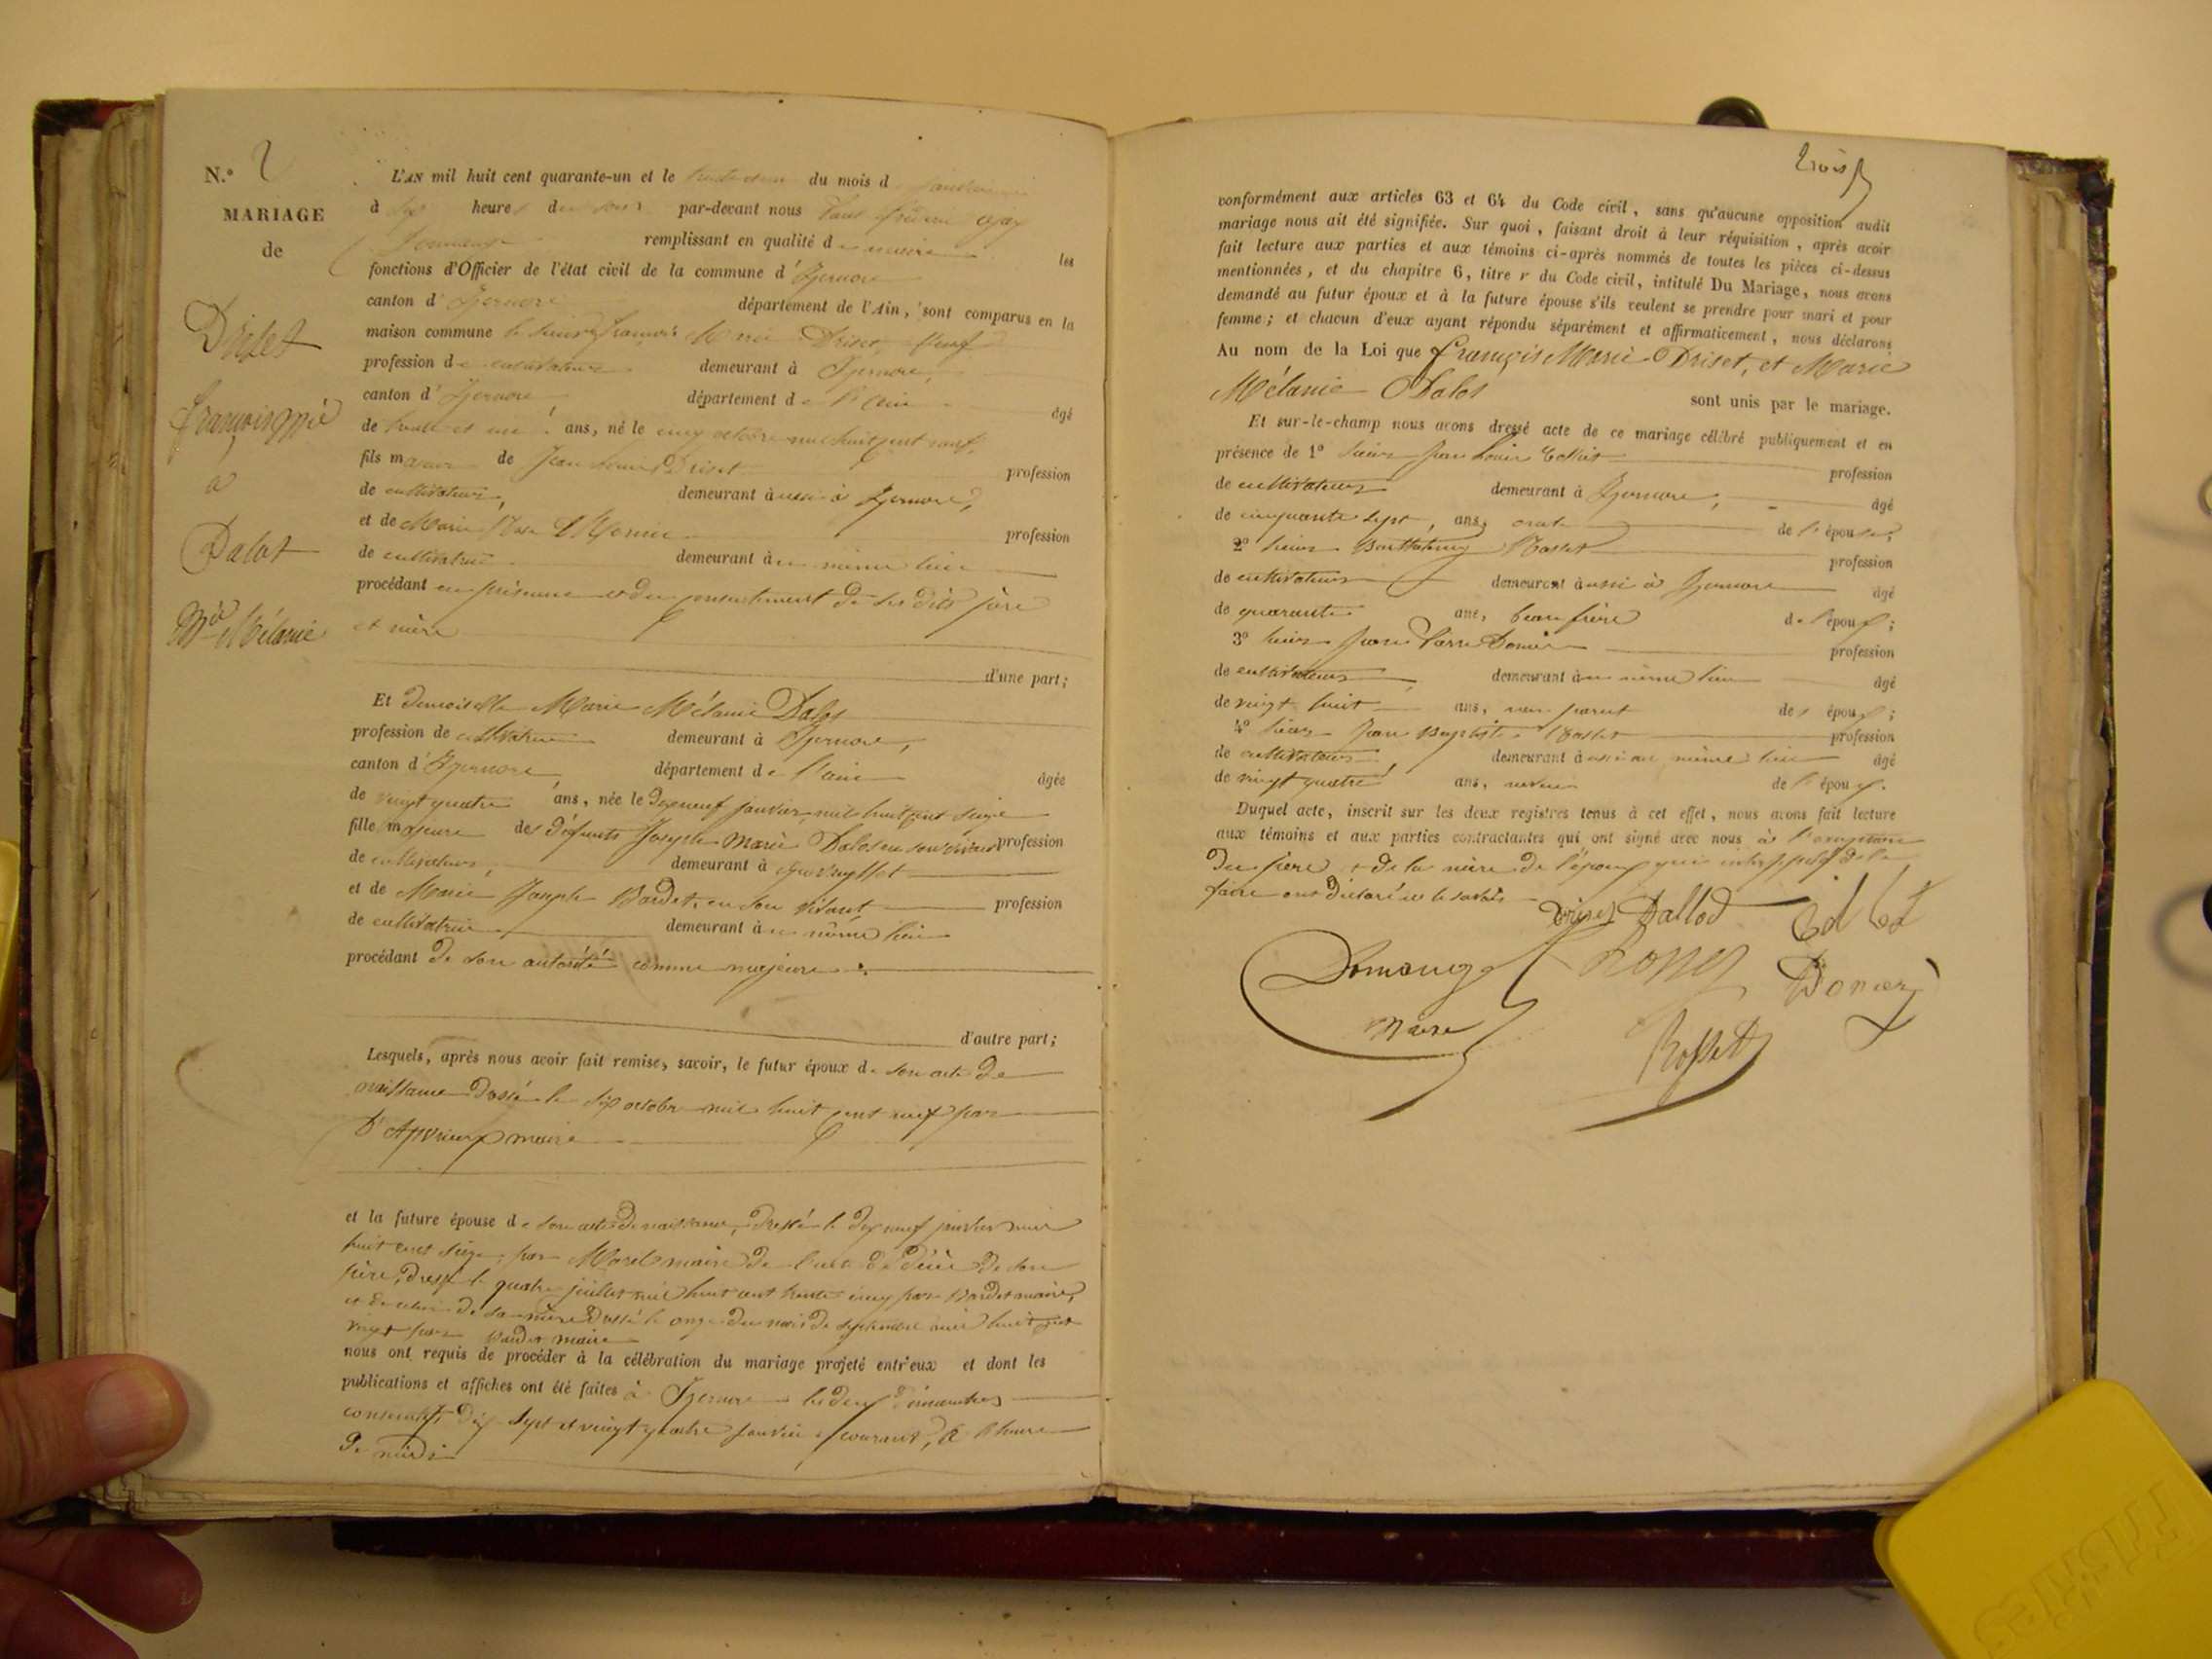 N.° 2
MARIAGE
de
Driset
françois Mie
à
Dalot
Mie Mélanie
L'AN mil huit cent quarante-un et le du mois d
à heures du soir par-devant nous
remplissant en qualité de maire les
fonctions d'Officier de l'état civil de la commune d'Izernore
canton d'Izernore département de l'Ain, sont comparus en la
maison commune le sieur françois Marie Driset
profession de cultivateur demeurant à Izernore,
canton d'Izernore département de l'ain âgé
de trente et un ans, né le cinq octobre mil huit cent neuf,
fils majeur de Jean Louis Driset profession
de cultivateur, demeurant à aussi à Izernore,
et de Marie profession
de cultivatrice demeurant à même lieu
procédant en présence et du consentement de ses dits père
et mère
d'une part;
Et demoiselle Marie Mélanie Dalos
profession de cultivatrice demeurant à Izernore,
canton d'Izernore, département de l'ain âgée
de vingt quatre ans, née le dix neuf janvier mil huit cent seize
fille majeure des défunts Joseph Marie Dalos en son vivant profession
de cultivateur, demeurant à
et de Marie Josephe Bardet, en son vivant profession
de cultivatrice demeurant à même lieu
procédant de son autorité comme majeure
d'autre part;
Lesquels, après nous avoir fait remise, savoir, le futur époux de son acte de
naissance dressé le six octobre mil huit cent neuf par
maire
et la future épouse de son acte de naissance, dressé le dix neuf janvier mil
huit cent seize, par Morel maire de l'acte de décès de son
père, dressé le quatre juillet mil huit cent trente cinq par Bardet maire,
et de celui de sa mère dressé le onze du mois de septembre mil huit cent
vingt par Bardet maire
nous ont requis de procéder à la célébration du mariage projeté entr'eux et dont les
publications et affiches ont été faites à Izernore les deux dimanches
consécutifs dix sept et vingt quatre janvier courant, à l'heure
de midi
trois
conformément aux articles 63 et 64 du Code civil, sans qu'aucune opposition audit
mariage nous ait été signifiée. Sur quoi, faisant droit à leur réquisition, après avoir
fait lecture aux parties et aux témoins ci-après nommés de toutes les pièces ci-dessus
mentionnées, et du chapitre 6, titre v du Code civil, intitulé Du Mariage, nous avons
demandé au futur époux et à la future épouse s'ils veulent se prendre pour mari et pour
femme; et chacun d'eux ayant répondu séparément et affirmativement, nous déclarons
Au nom de la Loi que françois Marie Driset, et Marie
Mélanie Dalos sont unis par le mariage.
Et sur-le-champ nous avons dressé acte de ce mariage célébré publiquement et en
présence de 1° sieur Jean Louis profession
de cultivateur demeurant à Izernore, âgé
de cinquante sept, ans, oncle de l'épouse;
2° sieur Barthelemy Rosset profession
de cultivateur demeurant à aussi à Izernore âgé
de quarante ans, beau frère de l'époux;
3° sieur Jean Pierre Donier profession
de cultivateur demeurant à même lieu âgé
de vingt huit ans, non parent des époux;
4° sieur Jean Baptiste Rosset profession
de cultivateur, demeurant à aussi au même lieu âgé
de vingt quatre ans, neveu de l'époux.
Duquel acte, inscrit sur les deux registres tenus à cet effet, nous avons fait lecture
aux témoins et aux parties contractantes qui ont signé avec nous à l'exception
du père et de la mère de l'époux qui de le
faire ont déclaré ne le savoir
Driset Dallod
Domange Rosset Donier
Maire
Rosset